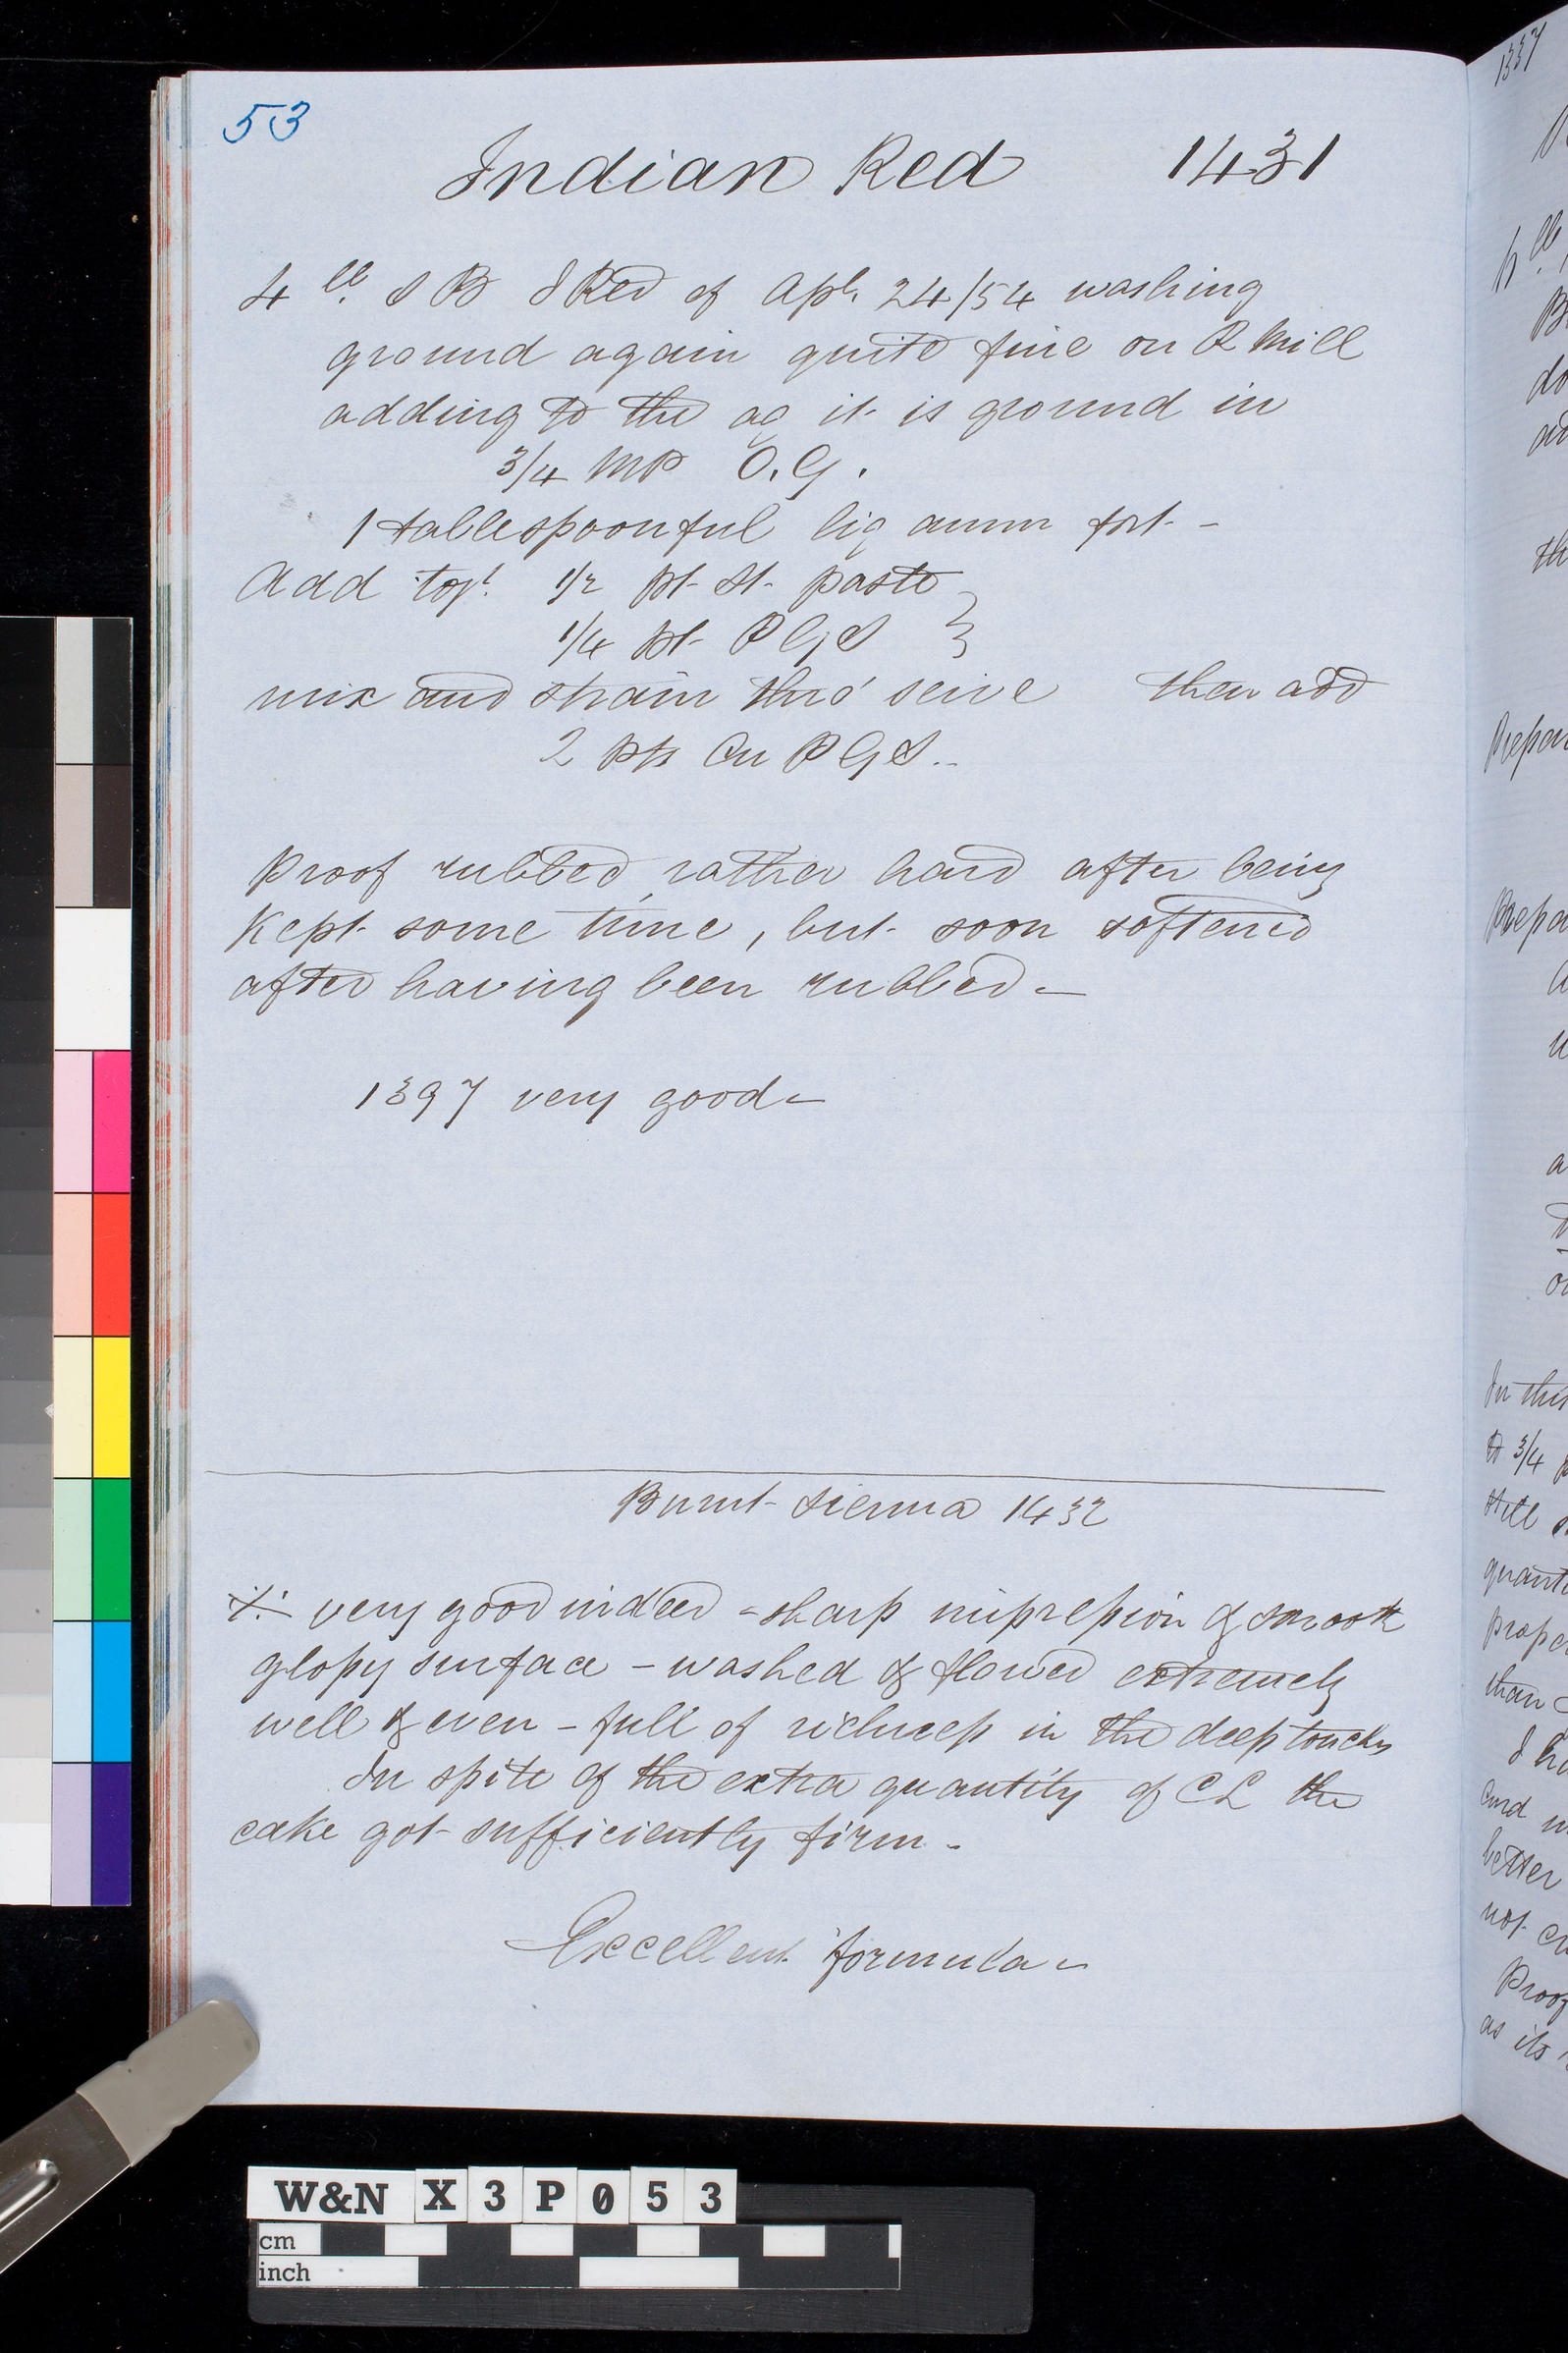 53
Indian Red 1431
4 lb. S B I Red of Apl. 24/54 washing
ground again quite fine on R Mill
adding to the aq it is ground in
3/4 MP O.G.
1 tablespoonful liq amm fort -
Add togr. 1/2 pt St. paste }
1/4 pt P G S
mix and strain thro' seive then add
2 pts Cu P G S..
Proof rubbed rather hard after being
kept some time, but soon softened
after having been rubbed -
1397 very good -
Burnt Sienna 1432
very good indeed - sharp impression & smooth
glossy surface - washed & flowed extremely
well & even - full of richness in the deep touches
In spite of the extra quantity of CL the
cake got sufficiently firm -
Excellent formula -
1337
In this
to 3/4
still
quanti
prope
than
and
better
not
Proof
as its
W&N X3P053
cm
inch